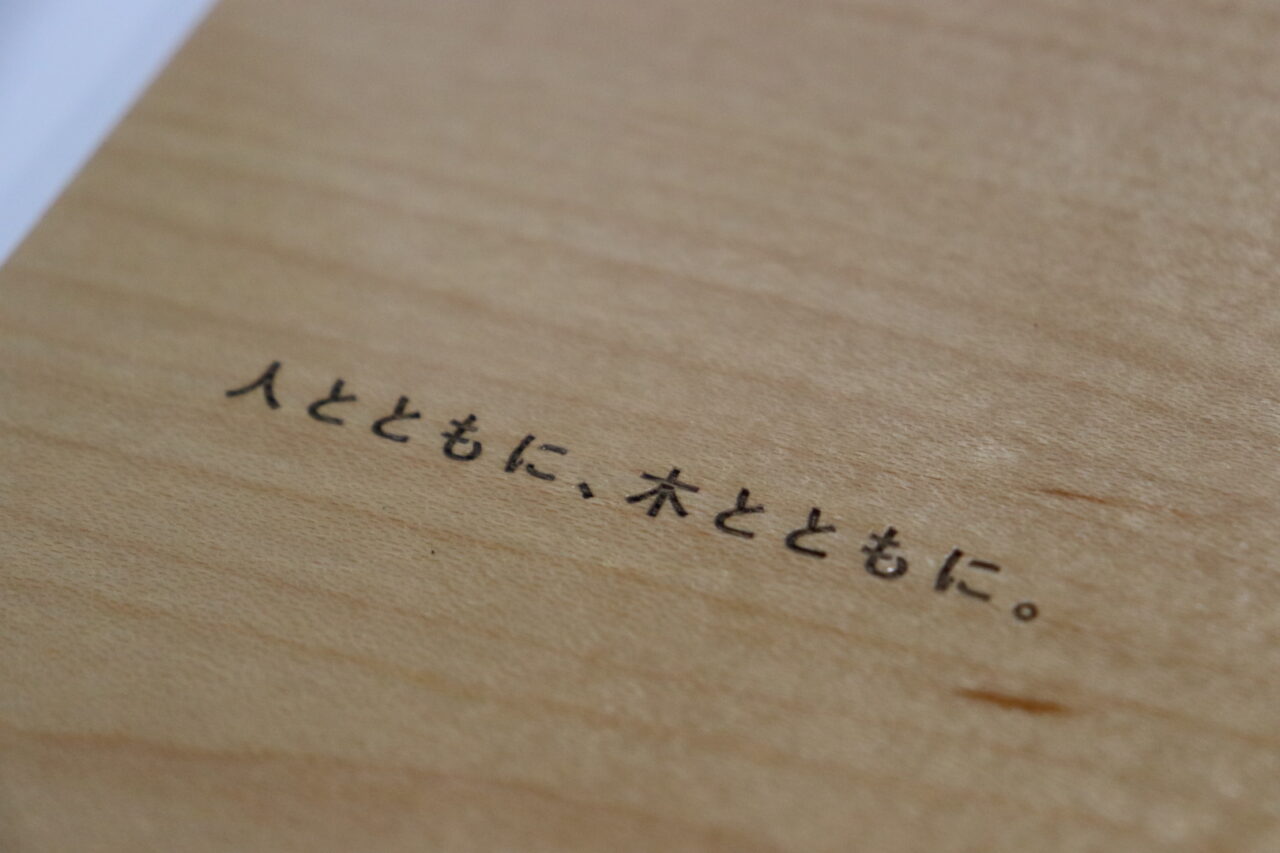 人とともに、木とともに。